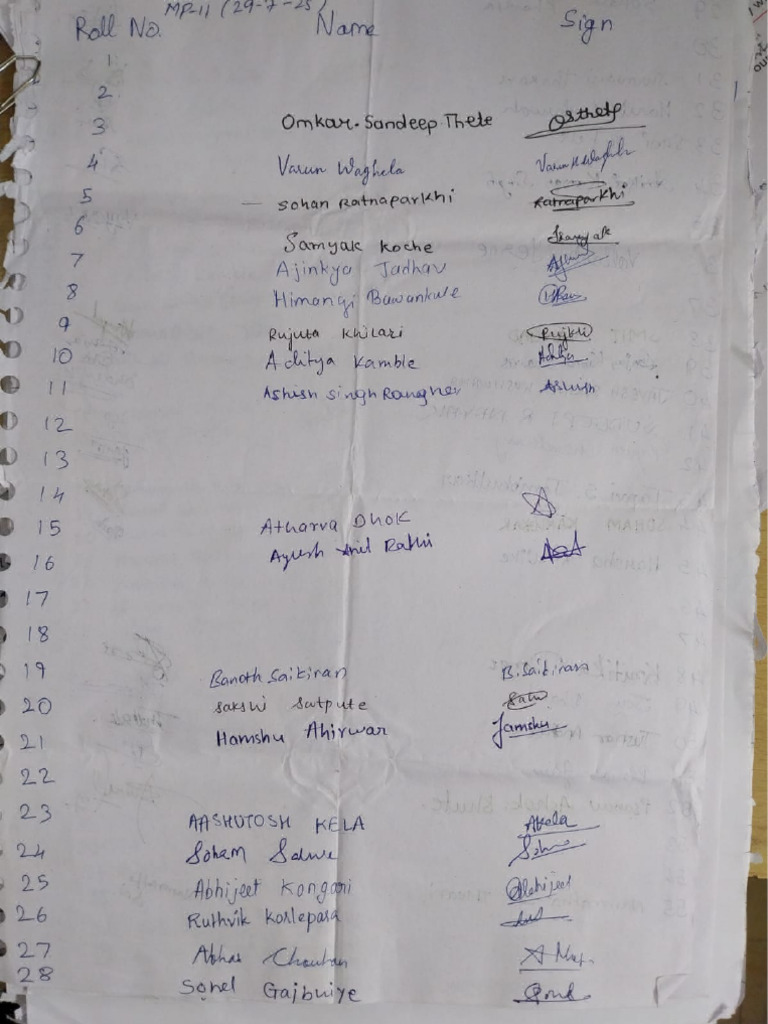 MP-11 (29-7-25)
Roll No. Name Sign
1
2
3 Omkar. Sandeep Thete OSthete
4 Varun Waghela Varun Waghela
5 Sohan Ratnaparkhi Ratnaparkhi
6 Samyak Koche Samyak
7 Ajinkya Jadhav
8 Himangi Bawankule
9 Rujuta Khilari
10 Aditya Kamble
11 Ashish Singh Ashish
12
13
14
15 Atharva Dhok
16 Ayush Anil Rathi
17
18
19 Banoth Saikiran B. Saikiran
20 Sakshi Satpute
21 Hamshu Ahirwar Hamshu
22
23 AASHUTOSH KELA AKela
24 Soham Salwe
25 Abhijeet Kongari Abhijeet
26 Ruthvik Korlepara
27 Chouhan
28 Sonel Gajbhiye